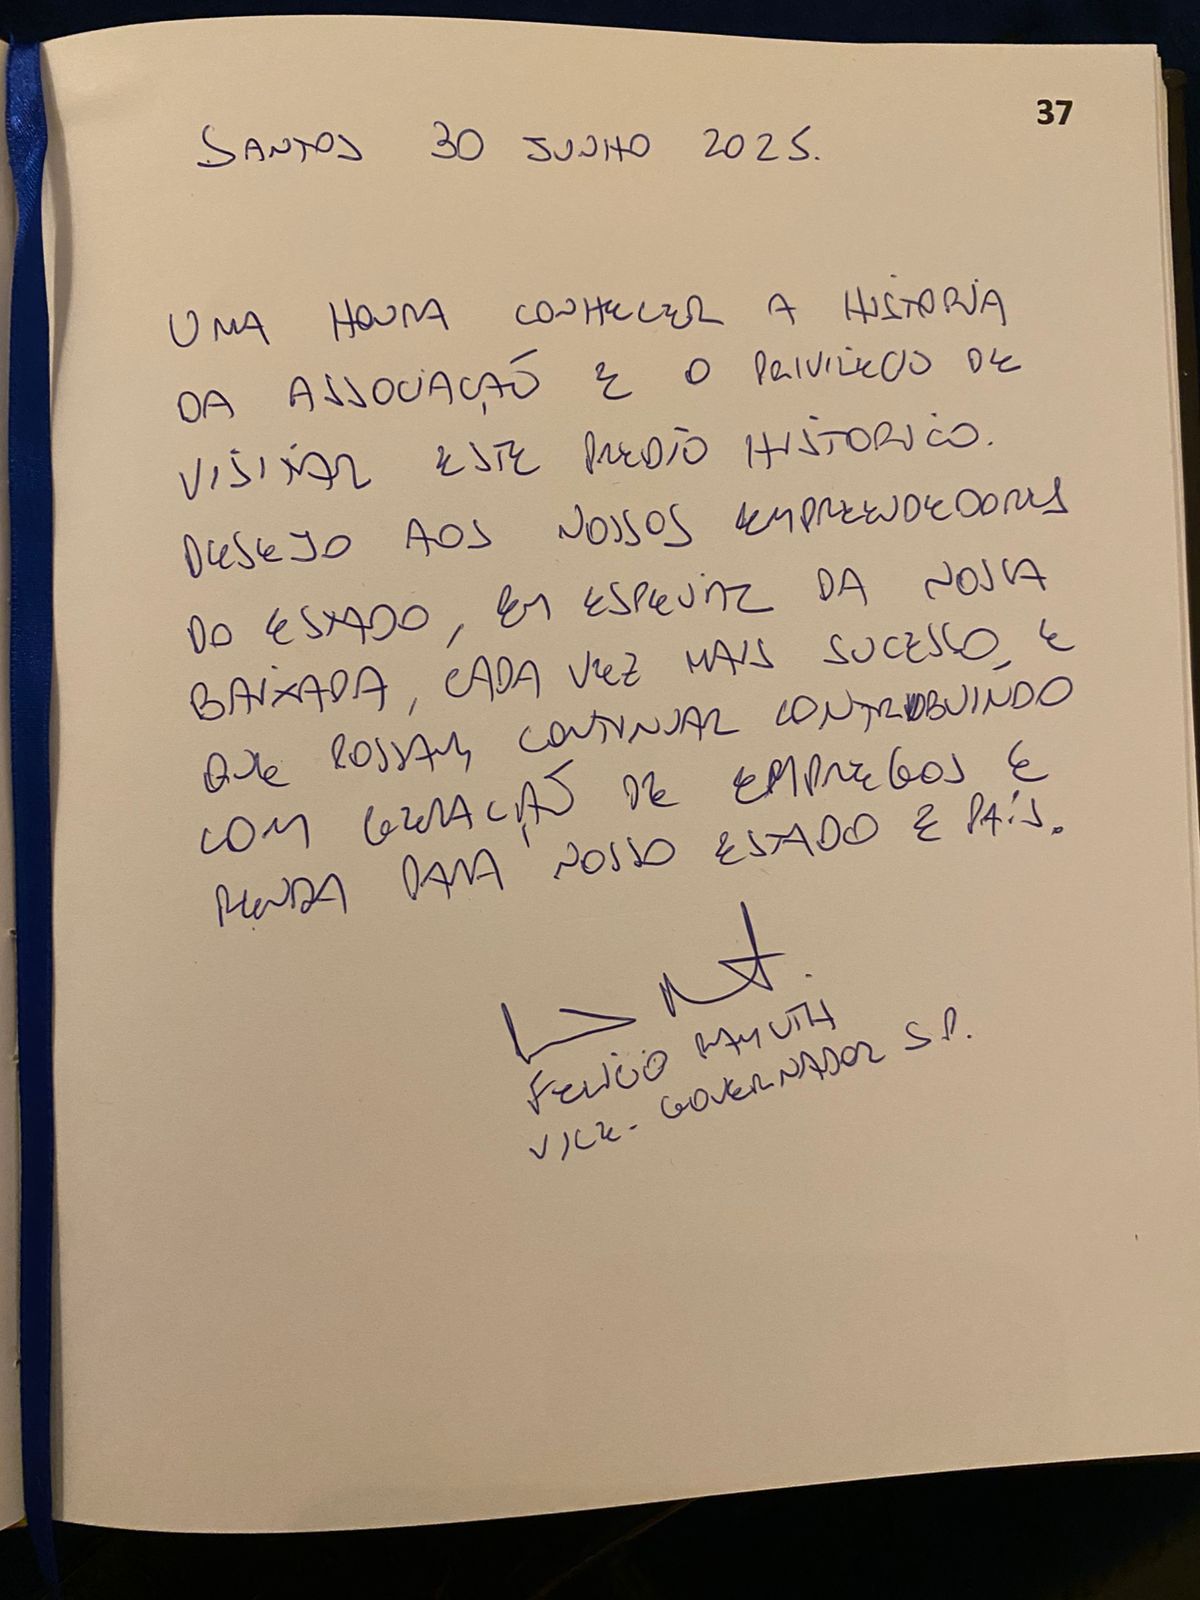 37
SANTOS 30 JUNHO 2025.
UMA HONRA CONHECER A HISTORIA
DA ASSOCIAÇÃO E O PRIVILEGIO DE
VISITAR ESTE PREDIO HISTORICO.
DESEJO AOS NOSSOS EMPREENDEDORES
DO ESTADO, EM ESPECIAL DA NOSSA
BAIXADA, CADA VEZ MAIS SUCESSO, E
QUE POSSAM CONTINUAR CONTRIBUINDO
COM GERAÇÃO DE EMPREGOS E
RENDA PARA NOSSO ESTADO E PAÍS.
FELICIO RAMUTH
VICE-GOVERNADOR S.P.